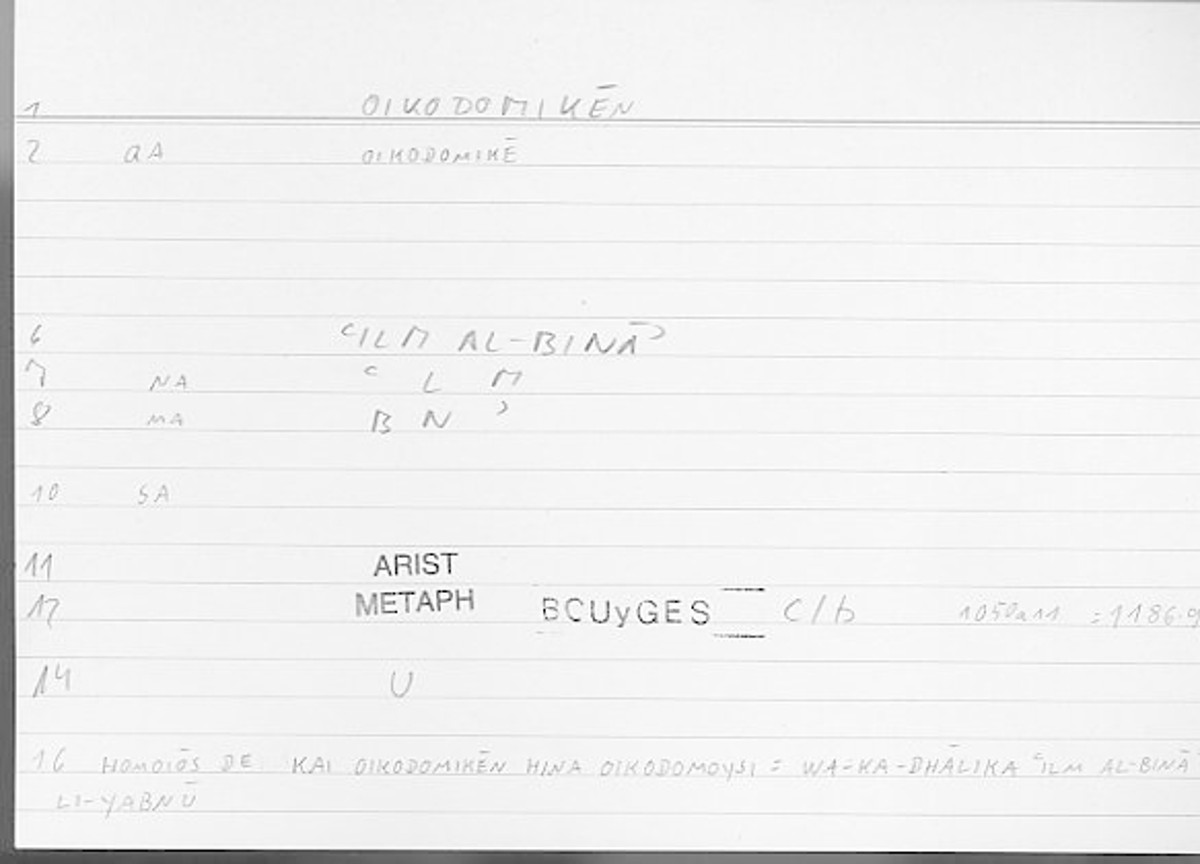 1 OIKODOMIKĒN
2 aA OIKODOMIKĒ
6 ʿILM AL-BINĀʾ
7 NA ʿ L M
8 MA B N ʾ
10 SA
11 ARIST
12 METAPH BCUyGES C/b 1050a11 = 1186.9
14 U
16 HOMOIŌS DE KAI OIKODOMIKĒN HINA OIKODOMOYSI = WA-KA-DHĀLIKA ʿILM AL-BINĀʾ
LI-YABNŪ